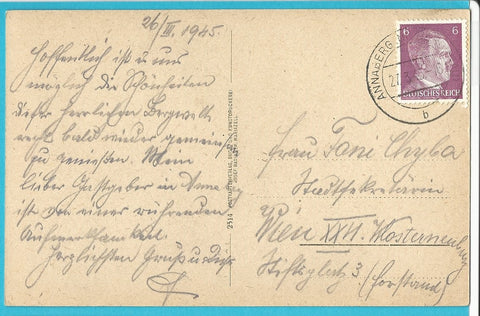 26/III. 1945.
Hoffentlich ist es uns
möglich die Schönheiten
dieser herrlichen Bergwelt
recht bald wieder gemeinsam
zu genießen. Mein
lieber Gastgeber in Anna
ist von einer rührenden
Aufmerksamkeit.
Herzlichsten Gruß u.
2514
ANNABERG
27.3.
b
6 6
DEUTSCHES REICH
Frau Toni Chyba
Stadtsekretärin
Wien XXVI. Klosterneuburg
Stiftsplatz 3 (Forstamt)